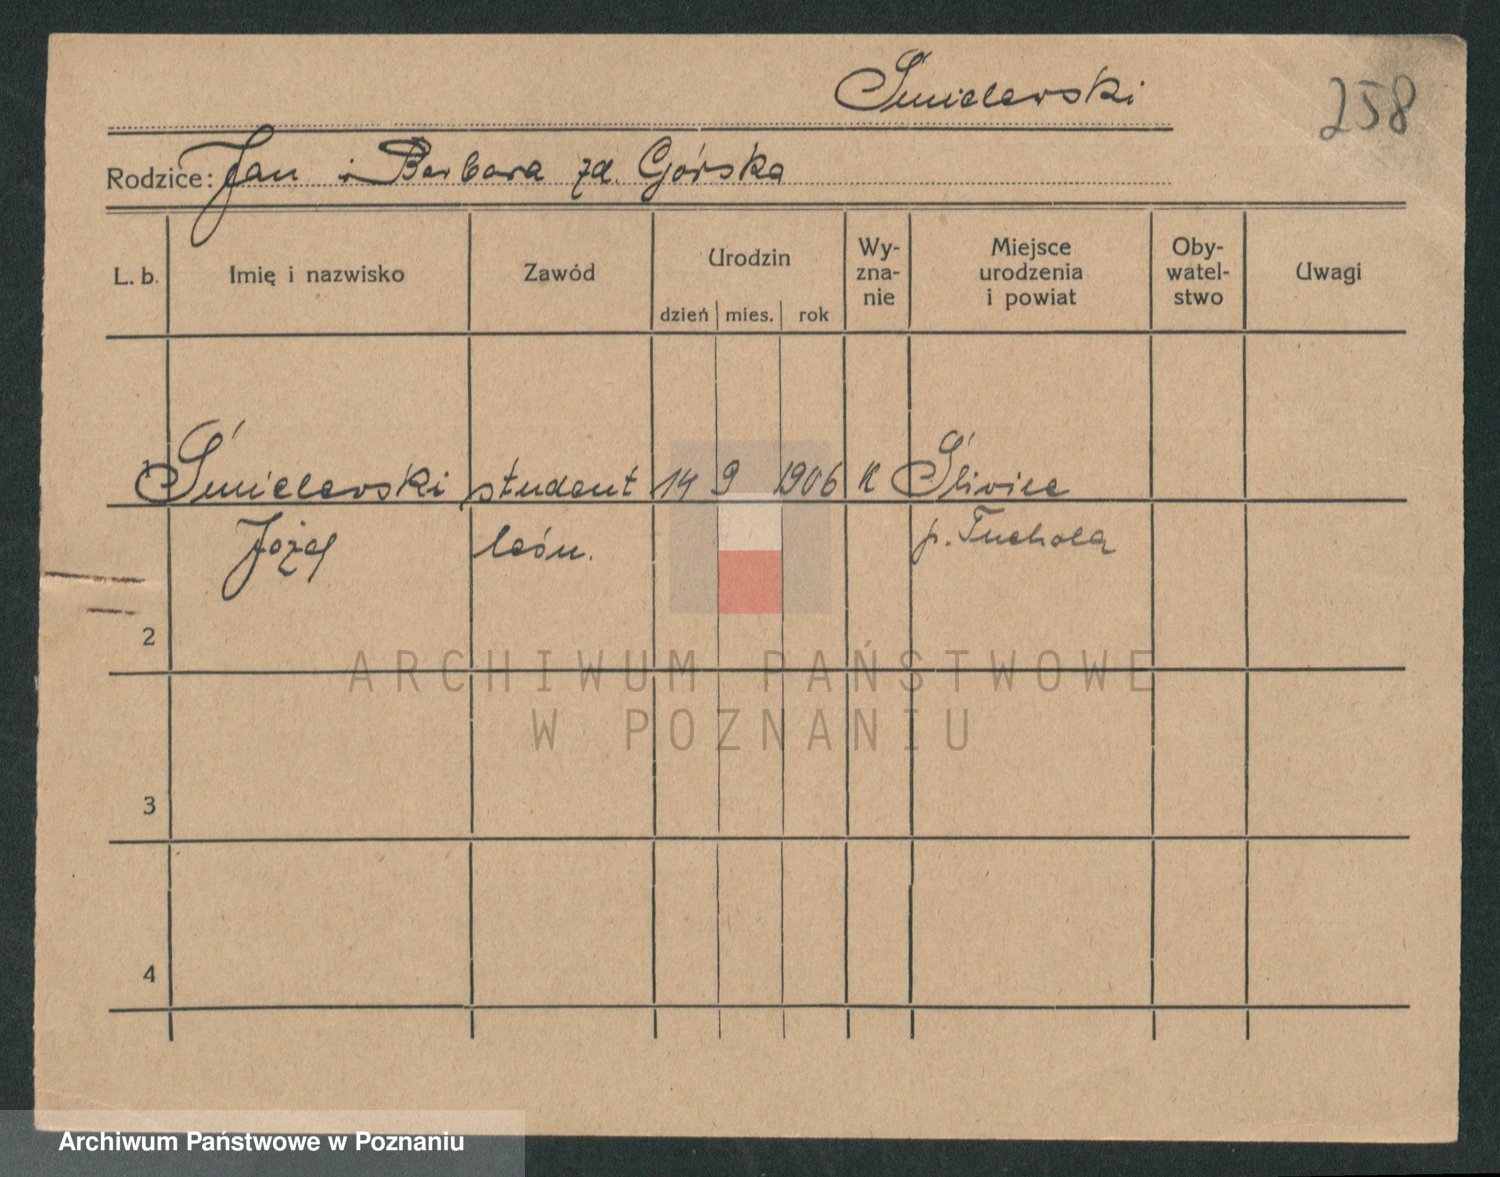 Śmielewski
258
Rodzice: Jan i Barbara zd. Górska
L. b.
Imię i nazwisko
Zawód
Urodzin
dzień
mies.
rok
Wy-
zna-
nie
Miejsce
urodzenia
i powiat
Oby-
watel-
stwo
Uwagi
1 Śmielewski student 14 9 1906 K Śliwice
Józef leśn. p. Tuchola
2
3
4
ARCHIWUM PAŃSTWOWE
W POZNANIU
Archiwum Państwowe w Poznaniu